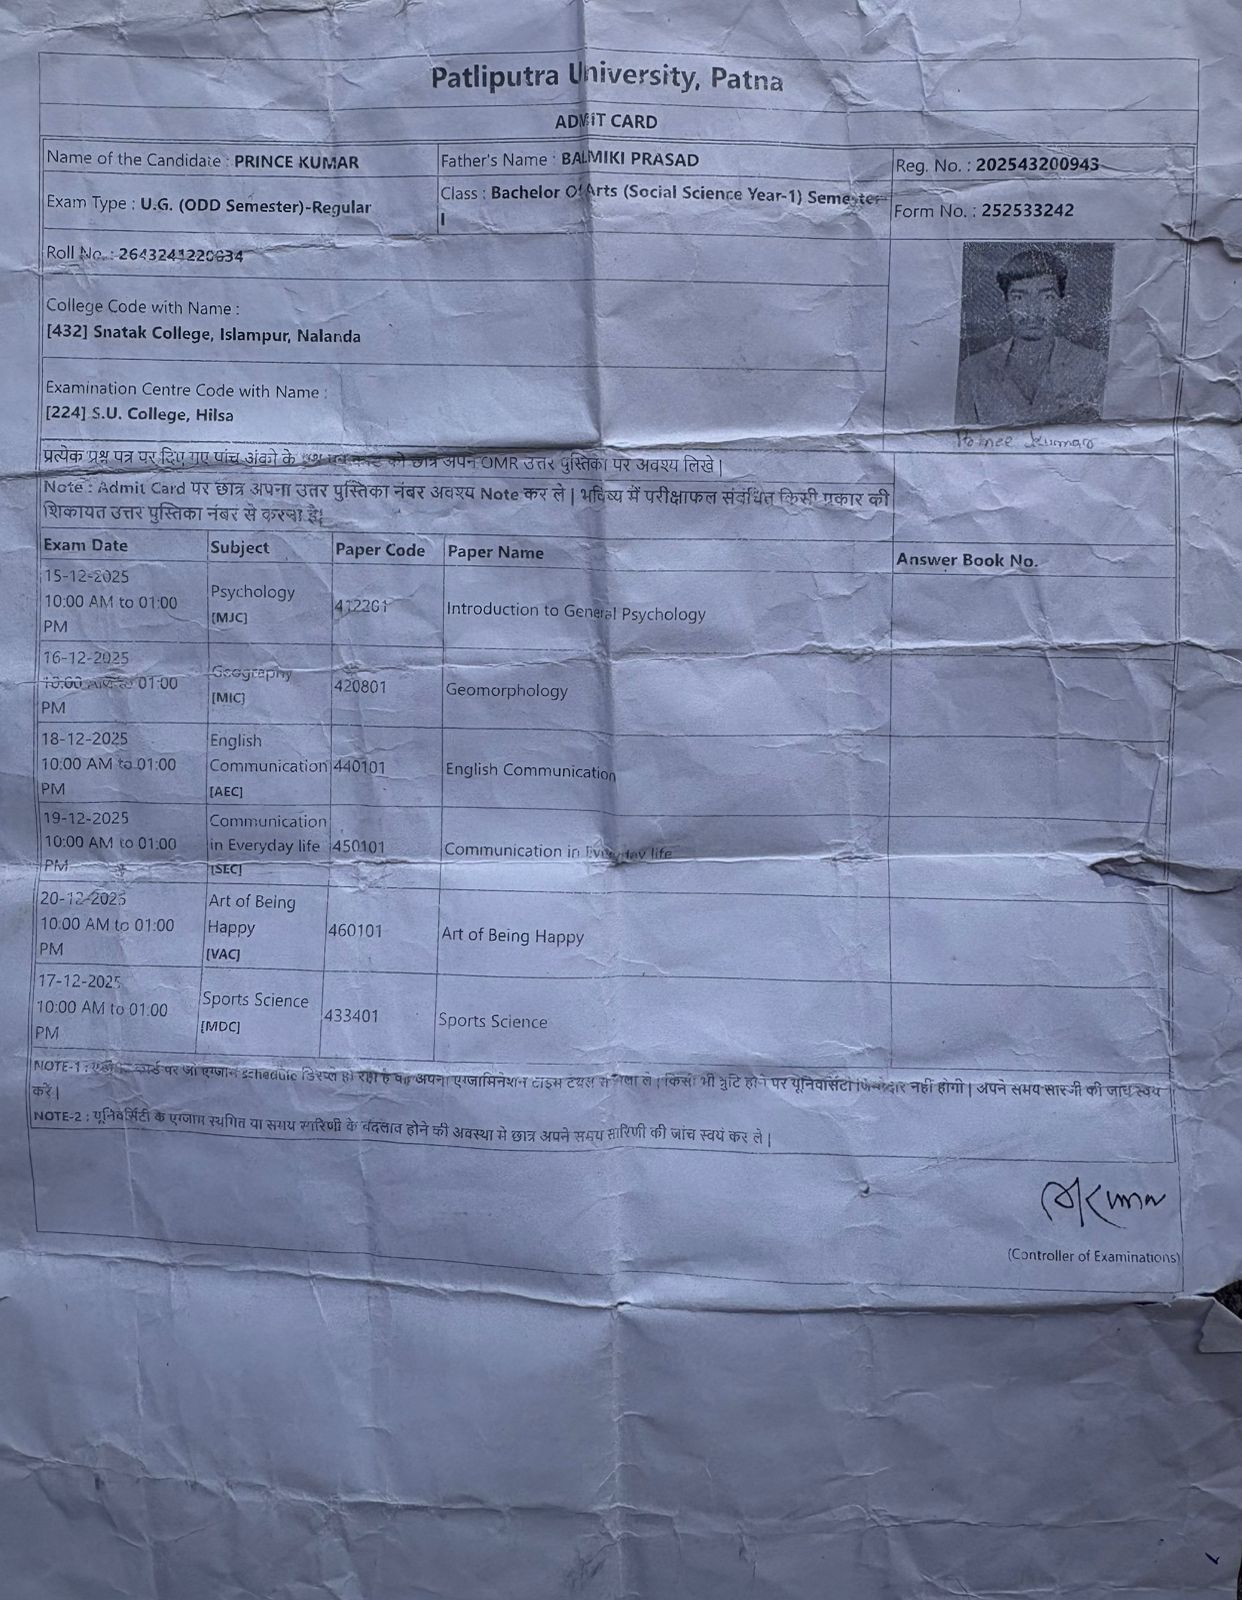 Patliputra University, Patna
ADMIT CARD
Name of the Candidate : PRINCE KUMAR
Father's Name : BALMIKI PRASAD
Reg. No. : 202543200943
Exam Type : U.G. (ODD Semester)-Regular
Class : Bachelor Of Arts (Social Science Year-1) Semester
I
Form No. : 252533242
Roll No. :
College Code with Name :
[432] Snatak College, Islampur, Nalanda
Examination Centre Code with Name :
[224] S.U. College, Hilsa
Prince Kumar
प्रत्येक प्रश्न पत्र पर दिए गए पांच अंको के को छात्र अपने OMR उत्तर पुस्तिका पर अवश्य लिखे |
Note : Admit Card पर छात्र अपना उत्तर पुस्तिका नंबर अवश्य Note कर ले | भविष्य में परीक्षाफल संबंधित किसी प्रकार की
शिकायत उत्तर पुस्तिका नंबर से करना है|
Exam Date Subject Paper Code Paper Name Answer Book No.
15-12-2025
10:00 AM to 01:00
PM
Psychology
[MJC]
412201
Introduction to General Psychology
16-12-2025
10:00 AM to 01:00
PM
Geography
[MIC]
420801
Geomorphology
18-12-2025
10:00 AM to 01:00
PM
English
Communication
[AEC]
440101
English Communication
19-12-2025
10:00 AM to 01:00
PM
Communication
in Everyday life
[SEC]
450101
Communication in Everyday life
20-12-2025
10:00 AM to 01:00
PM
Art of Being
Happy
[VAC]
460101
Art of Being Happy
17-12-2025
10:00 AM to 01:00
PM
Sports Science
[MDC]
433401
Sports Science
NOTE-1 : कार्ड पर जो एग्जाम schedule डिस्प्ले हो रहा है वह अपना एग्जामिनेशन टाइम टेबल से मिला ले | किसी भी त्रुटि होने पर यूनिवर्सिटी जिम्मेदार नहीं होगी | अपने समय सारणी की जांच स्वयं
करें |
NOTE-2 : यूनिवर्सिटी के एग्जाम स्थगित या समय सारिणी के बदलाव होने की अवस्था मे छात्र अपने समय सारिणी की जांच स्वयं कर ले |
(Controller of Examinations)